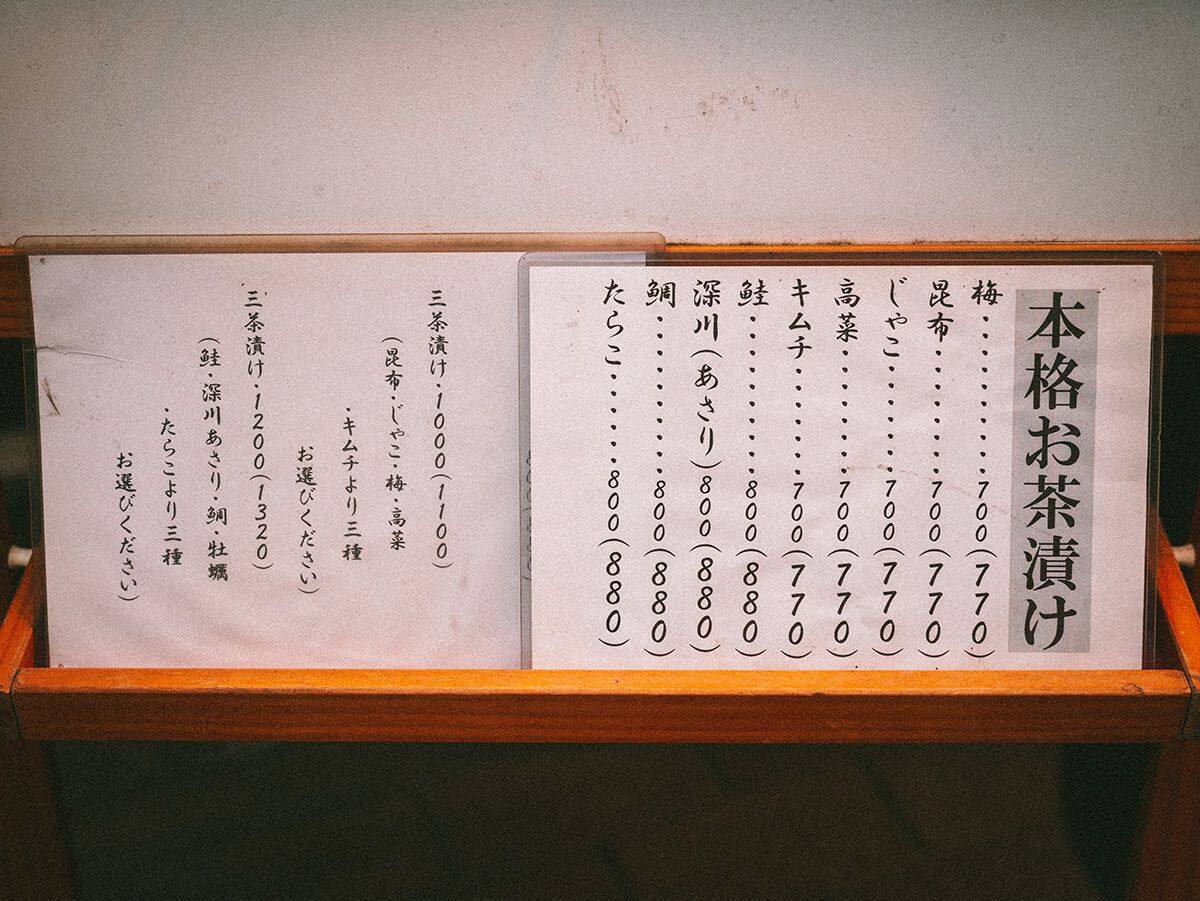 本格お茶漬け
梅・・・・・・・・・・・700(770)
昆布・・・・・・・・・700(770)
じゃこ・・・・・・・・700(770)
高菜・・・・・・・・・700(770)
キムチ・・・・・・・・700(770)
鮭・・・・・・・・・・・800(880)
深川(あさり)800(880)
鯛・・・・・・・・・・・800(880)
たらこ・・・・・・・・800(880)
三茶漬け・1000(1100)
(昆布・じゃこ・梅・高菜
・キムチより三種
お選びください)
三茶漬け・1200(1320)
(鮭・深川あさり・鯛・牡蠣
・たらこより三種
お選びください)